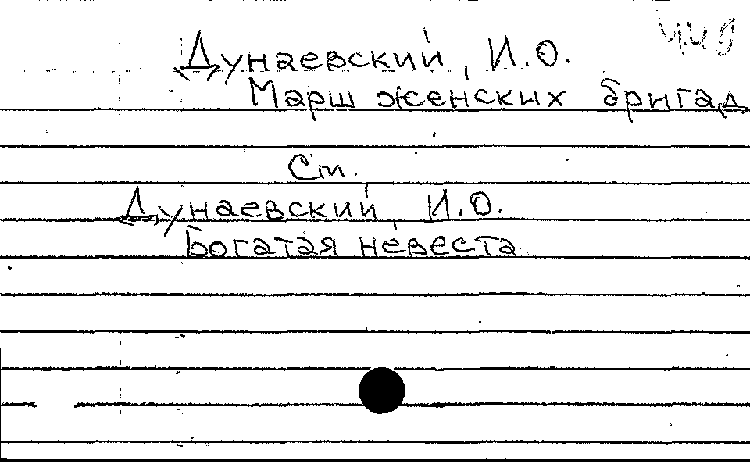 Дунаевский, И.О.
Марш женских бригад
См.
Дунаевский, И.О.
Богатая невеста